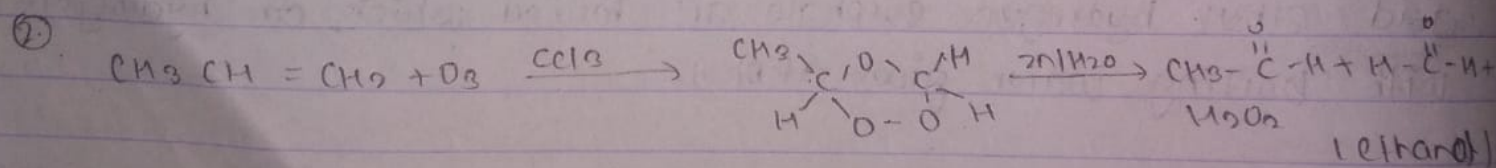 2.
CH3 CH = CH2 + O3 CCl3 → CH3 C O C H H O - O H Zn/H2O → CH3 - C - H + H - C - H +
O O
H2O2
(ethanol)